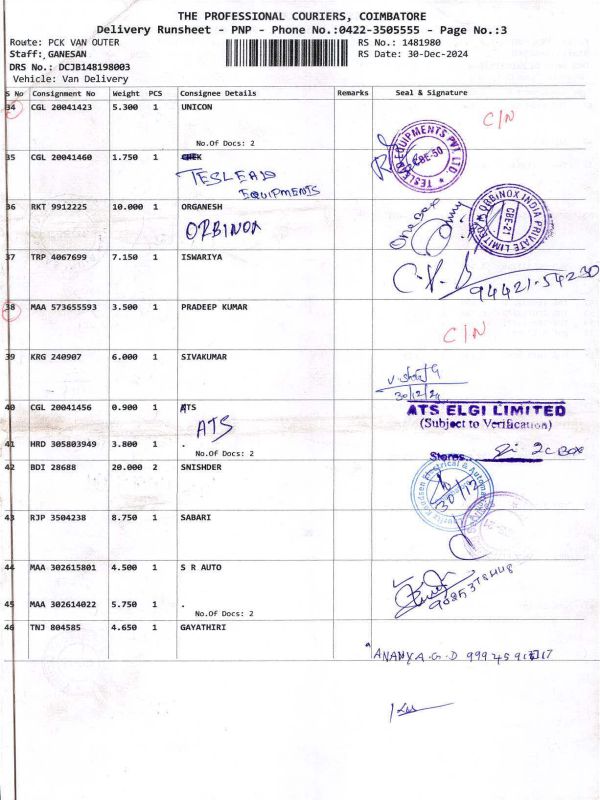 THE PROFESSIONAL COURIERS, COIMBATORE
Delivery Runsheet - PNP - Phone No.:0422-3505555 - Page No.:3
Route: PCK VAN OUTER RS No.: 1481980
Staff: GANESAN RS Date: 30-Dec-2024
DRS No.: DCJB148198003
Vehicle: Van Delivery
S No Consignment No Weight PCS Consignee Details Remarks Seal & Signature
34 CGL 20041423 5.300 1 UNICON C/N
No.Of Docs: 2
35 CGL 20041460 1.750 1 TESLEAD EQUIPMENTS PVT. LTD. CBE-50
TESLEAD
EQUIPMENTS
36 RKT 9912225 10.000 1 ORGANESH
ORBINOX One Box ORBINOX INDIA PRIVATE LIMITED CBE-21
37 TRP 4067699 7.150 1 ISWARIYA
94421-54230
38 MAA 573655593 3.500 1 PRADEEP KUMAR
C/N
39 KRG 240907 6.000 1 SIVAKUMAR
30/12/24
40 CGL 20041456 0.900 1 ATS ATS ELGI LIMITED
ATS (Subject to Verification)
41 HRD 305803949 3.800 1 .
No.Of Docs: 2 Stores 2 C BOX
42 BDI 28688 20.000 2 SNISHDER
30/12
43 RJP 3504238 8.750 1 SABARI
44 MAA 302615801 4.500 1 S R AUTO
45 MAA 302614022 5.750 1 .
No.Of Docs: 2
46 TNJ 804585 4.650 1 GAYATHIRI
ANANYA.G.D